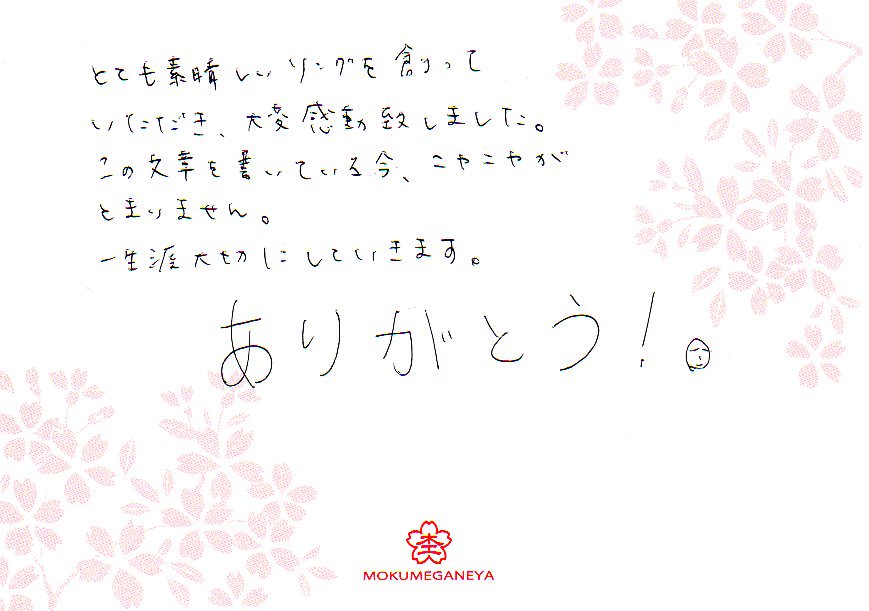 とても素晴しいリングを創って
いただき、大変感動致しました。
この文章を書いている今、ニヤニヤが
とまりません。
一生涯大切にしていきます。
ありがとう!
杢
MOKUMEGANEYA